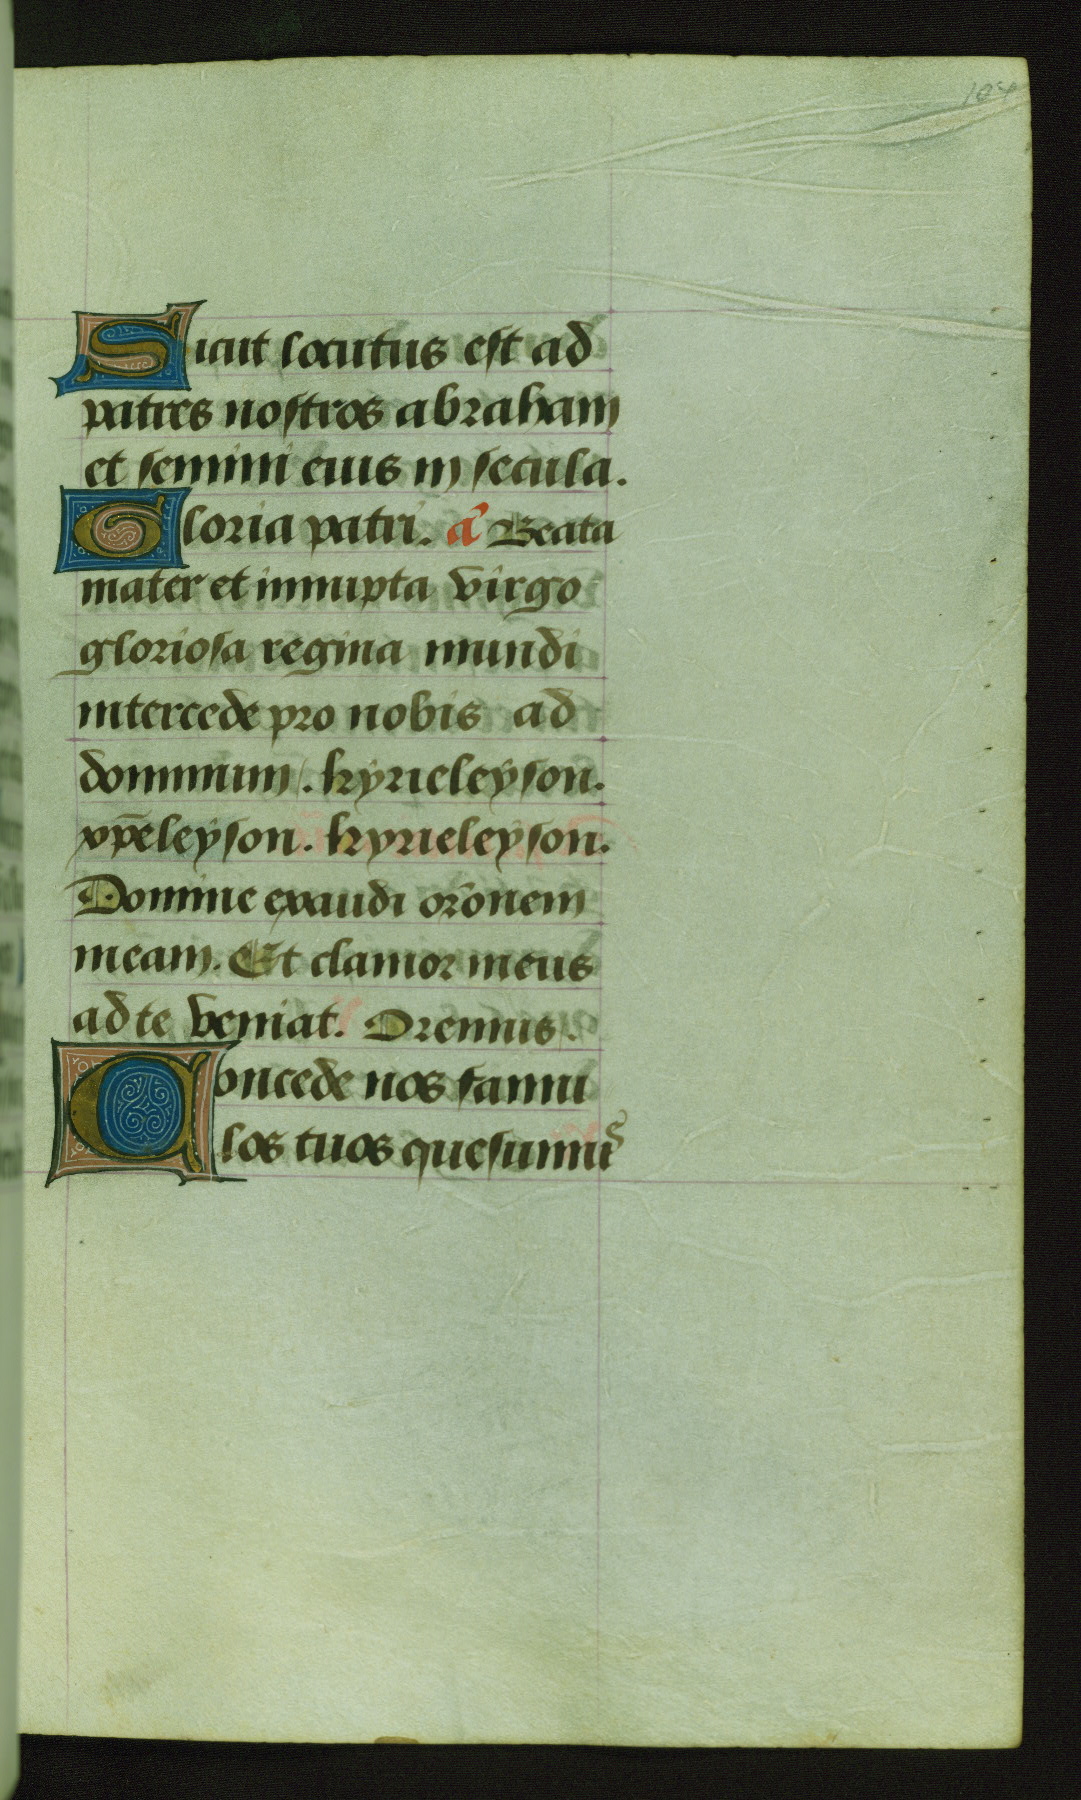 Sicut locutus est ad
patres nostros abraham
et semini eius in secula.
Gloria patri. añ Beata
mater et innupta virgo
gloriosa regina mundi
intercede pro nobis ad
dominum. kyrieleyson.
xp̄eleyson. kyrieleyson.
Domine exaudi or̄onem
meam. Et clamor meus
ad te veniat. Oremus.
Concede nos famu
los tuos quesumus